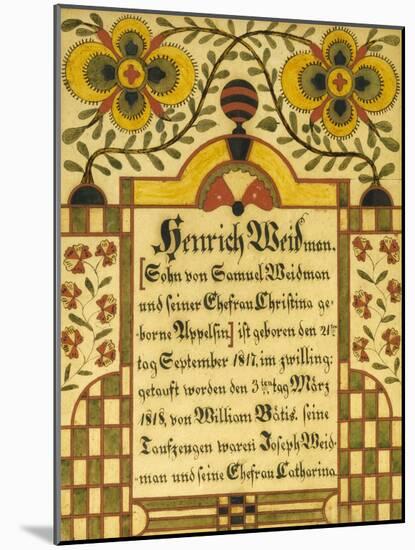 Henrich Weidman.
[Sohn von Samuel Weidman
und seiner Ehefrau Christina ge-
borne Uppelsin] ist geboren den 21ten
tag September 1817, im zwilling:
getauft worden den 3ten tag März
1818, von William Bötis. seine
Taufzeugen waren Joseph Weid-
man und seine Ehefrau Catharina